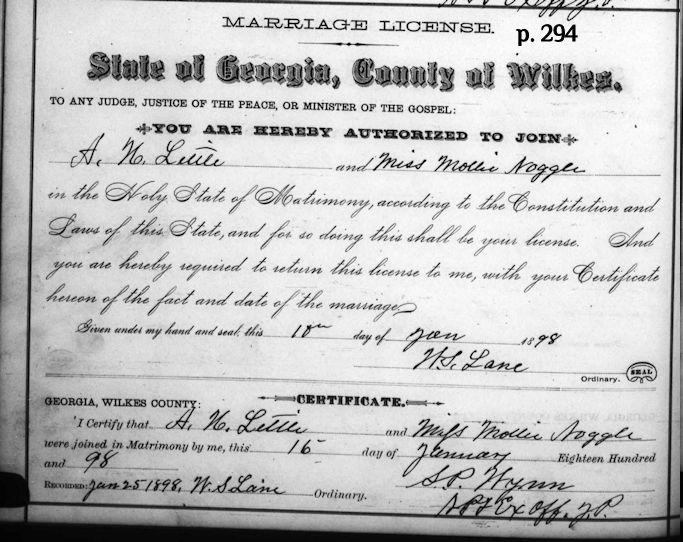 MARRIAGE LICENSE.
p. 294
State of Georgia, County of Wilkes.
TO ANY JUDGE, JUSTICE OF THE PEACE, OR MINISTER OF THE GOSPEL:
YOU ARE HEREBY AUTHORIZED TO JOIN
A. H. Little and Miss Mollie Noggle
in the Holy State of Matrimony, according to the Constitution and
Laws of this State, and for so doing this shall be your license. And
you are hereby required to return this license to me, with your Certificate
hereon of the fact and date of the marriage.
Given under my hand and seal, this day of Jan 1898
W. S. Lane
Ordinary. SEAL
CERTIFICATE.
GEORGIA, WILKES COUNTY:
I Certify that A. H. Little and Miss Mollie Noggle
were joined in Matrimony by me, this 15 day of January Eighteen Hundred
and 98
S. P. Wynn
RECORDED: Jan 25 1898, W. S. Lane Ordinary.
Ex Off. J. P.